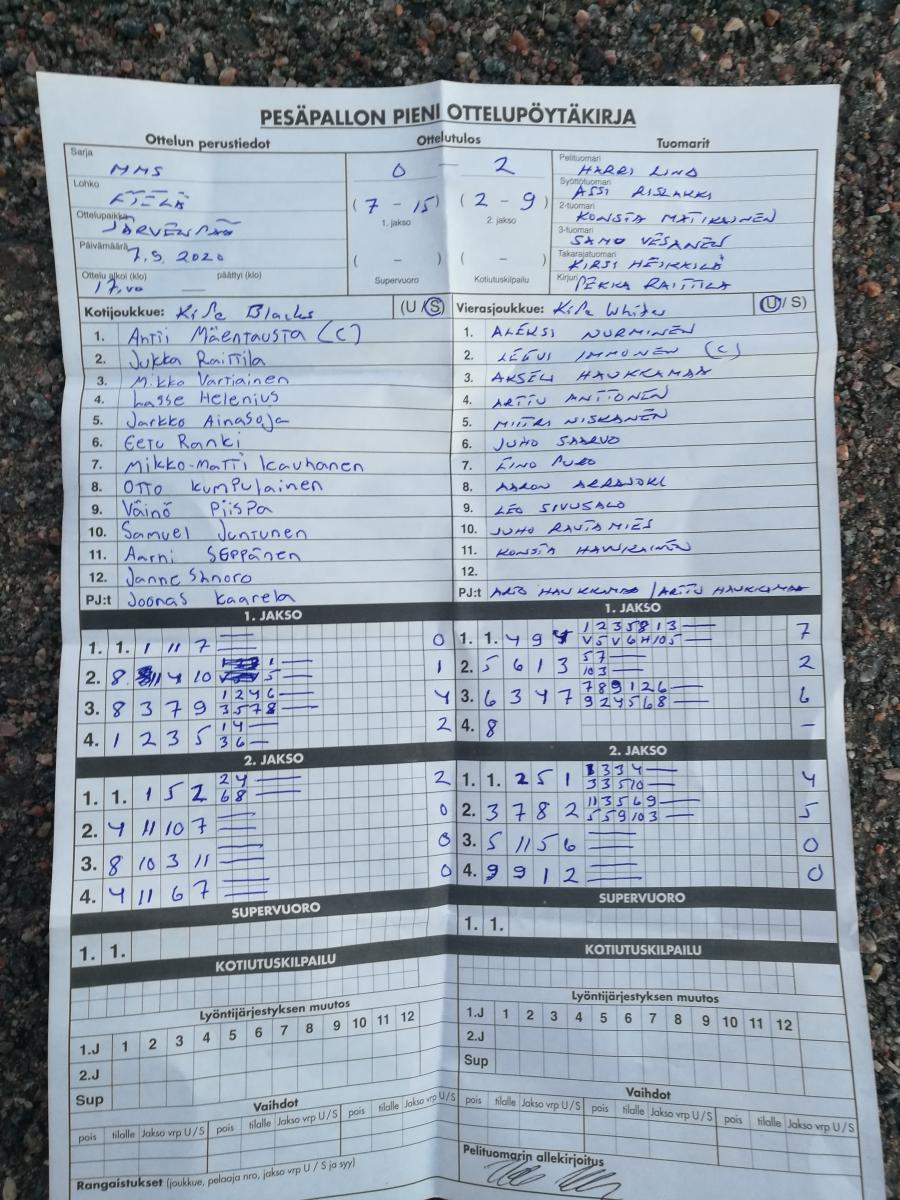 PESÄPALLON PIENI OTTELUPÖYTÄKIRJA
Ottelun perustiedot Ottelutulos Tuomarit
Sarja MMS
Lohko ETELÄ
Ottelupaikka JÄRVENPÄÄ
Päivämäärä 7.9.2020
Ottelu alkoi (klo) 17.00 päättyi (klo) —
0 — 2
(7 - 15) (2 - 9)
1. jakso 2. jakso
( - ) ( - )
Supervuoro Kotiutuskilpailu
Pelituomari HARRI LIND
Syöttötuomari ASSI RISLAKKI
2-tuomari KONSTA MATIKAINEN
3-tuomari SAMO VESANEN
Takarajatuomari KIRSI HEIKKILÄ
Kirjuri PEKKA RAITTILA
Kotijoukkue: KiPe Blacks (U / S)
1. Antti Mäentausta (C)
2. Jukka Raittila
3. Mikko Vartiainen
4. Lasse Helenius
5. Jarkko Ainasoja
6. Eetu Ranki
7. Mikko-Matti Kauhanen
8. Otto Kumpulainen
9. Väinö Piispa
10. Samuel Juntunen
11. Aarni SEPPÄNEN
12. Janne
PJ:t Joonas Kaarela
Vierasjoukkue: KiPe White (U / S)
1. ALEKSI NURMINEN
2. IMMONEN (C)
3. AKSELI HAUKKAMAA
4. ARTTU ANTTONEN
5. MIITRI NISKANEN
6. JUHO SAARVO
7. EINO PURO
8. AARON ARRAJOKI
9. LEO SIVUSALO
10. JUHO RAUTAMIES
11. KONSTA HAUKKAINEN
12.
PJ:t ARTO HAUKKAMAA / ARTTU HAUKKAMAA
1. JAKSO
1. 1. 1 11 7 0
2. 8 11 4 10 1
3. 8 3 7 9 1246 3578 4
4. 1 2 3 5 14 36 2
2. JAKSO
1. 1. 1 5 2 24 68 2
2. 4 11 10 7 0
3. 8 10 3 11 0
4. 4 11 6 7 0
SUPERVUORO
1. 1.
KOTIUTUSKILPAILU
1. JAKSO
1. 1. 4 9 4 1235813 7
2. 5 6 1 3 57 103 2
3. 6 3 4 7 789126 924568 6
4. 8 –
2. JAKSO
1. 1. 2 5 1 1334 33510 4
2. 3 7 8 2 113569 559103 5
3. 5 11 5 6 0
4. 9 9 1 2 0
SUPERVUORO
1. 1.
KOTIUTUSKILPAILU
Lyöntijärjestyksen muutos
1.J 1 2 3 4 5 6 7 8 9 10 11 12
2.J
Sup
Vaihdot
pois tilalle Jakso vrp U / S pois tilalle Jakso vrp U / S pois tilalle Jakso vrp U / S
Rangaistukset (joukkue, pelaaja nro, jakso vrp U / S ja syy)
Lyöntijärjestyksen muutos
1.J 1 2 3 4 5 6 7 8 9 10 11 12
2.J
Sup
Vaihdot
pois tilalle Jakso vrp U / S pois tilalle Jakso vrp U / S pois tilalle Jakso vrp U / S
Pelituomarin allekirjoitus